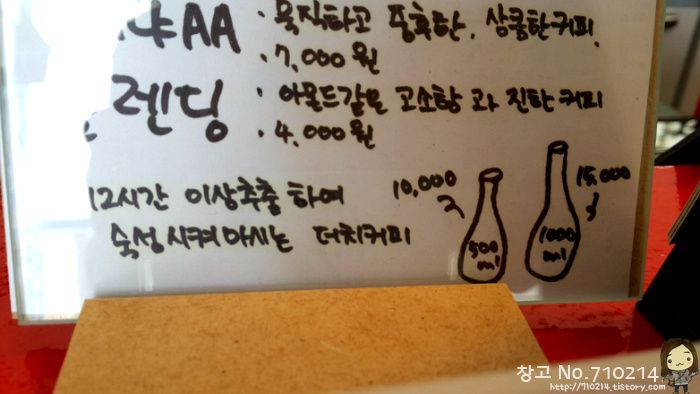 냐AA · 묵직하고 풍후한, 상큼한커피.
· 7,000원
렌딩 · 아몬드같은 고소함 과 진한커피
· 4,000원
12시간 이상추출 하여
숙성시켜마시는 더치커피
10,000
500 ml
15,000
1000 ml
창고 No.710214
http://710214.tistory.com/